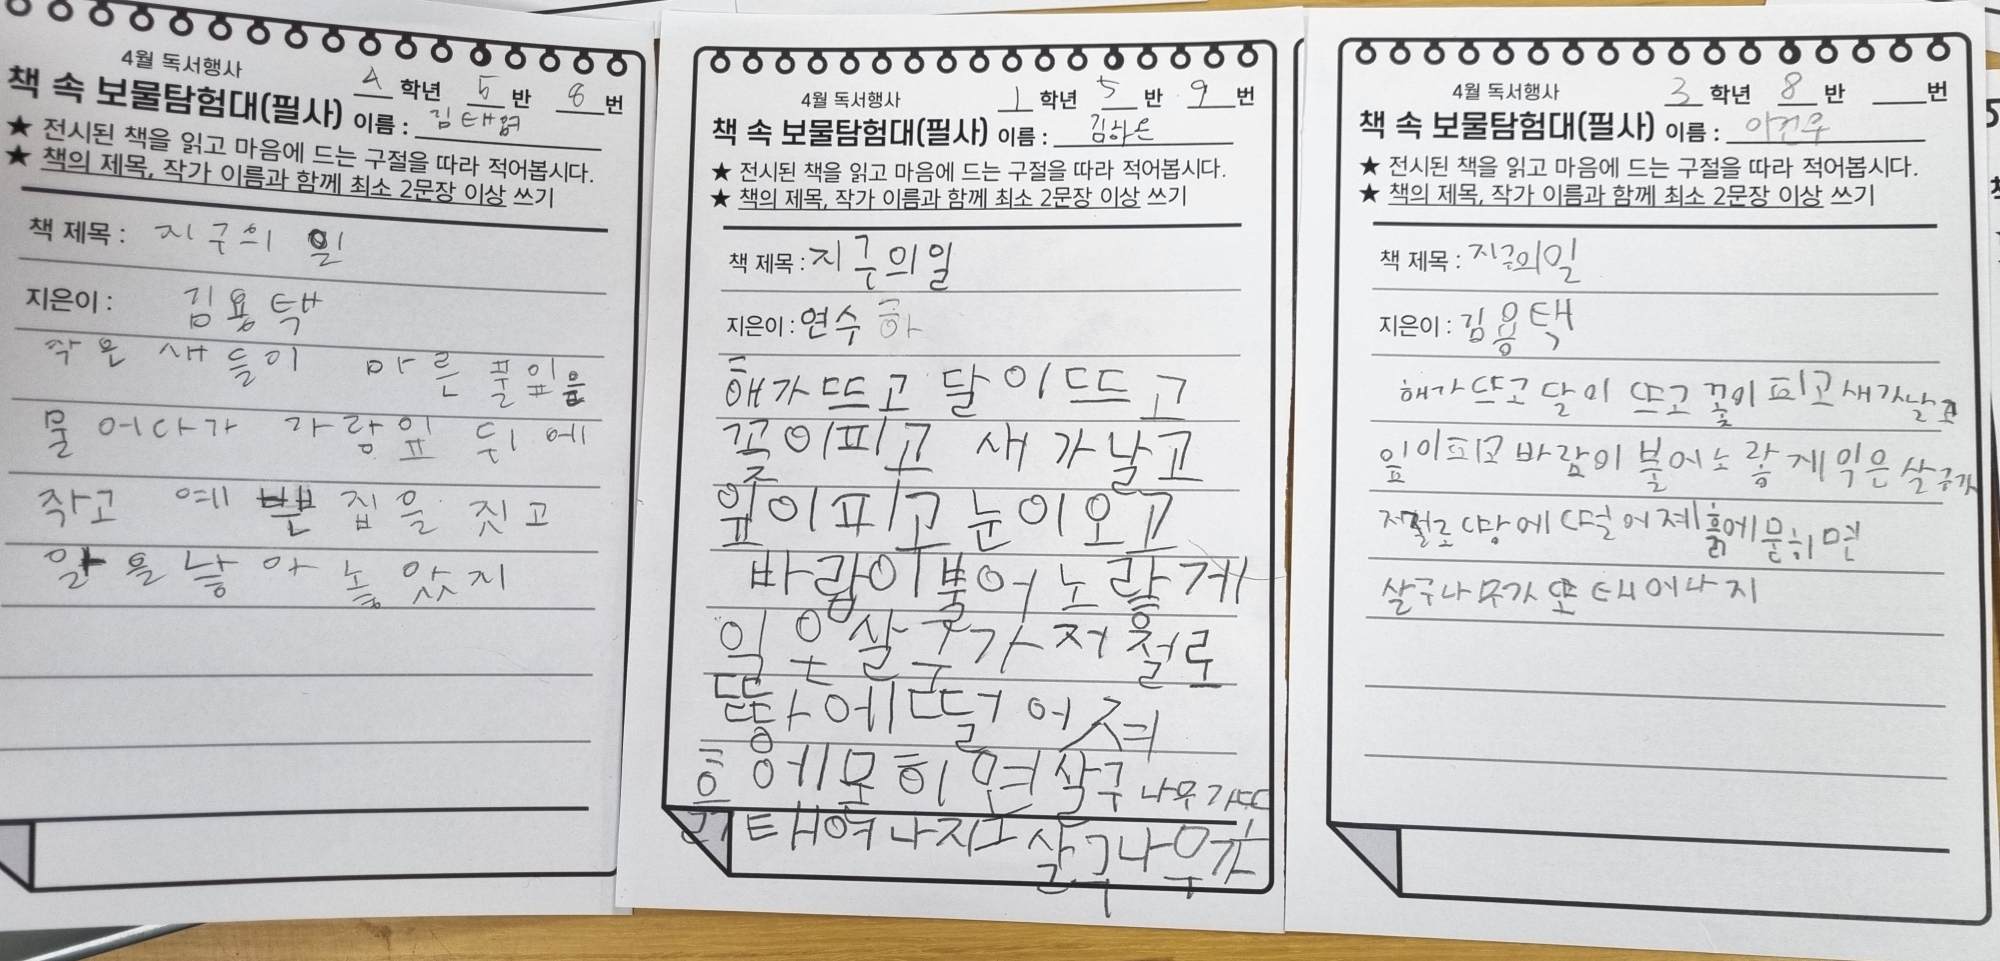 4월 독서행사
책 속 보물탐험대(필사)
4 학년 5 반 8 번
이름 : 김태혁
★ 전시된 책을 읽고 마음에 드는 구절을 따라 적어봅시다.
★ 책의 제목, 작가 이름과 함께 최소 2문장 이상 쓰기
책 제목 : 지구의 일
지은이 : 김용택
작은 새들이 마른 풀잎을
물어다가 가랑잎 뒤에
작고 예쁜 집을 짓고
알을 낳아 놓았지
4월 독서행사
책 속 보물탐험대(필사)
1 학년 5 반 9 번
이름 : 김하은
★ 전시된 책을 읽고 마음에 드는 구절을 따라 적어봅시다.
★ 책의 제목, 작가 이름과 함께 최소 2문장 이상 쓰기
책 제목 : 지구의일
지은이 : 연수 하
해가뜨고 달이뜨고
꽃이피고 새가날고
잎이피고 눈이오고
바람이불어 노랗게
익은살구가저절로
땅에떨어져
에묻히면살구나무가또
태여나지고살구나무가
4월 독서행사
책 속 보물탐험대(필사)
3 학년 8 반 번
이름 : 이건우
★ 전시된 책을 읽고 마음에 드는 구절을 따라 적어봅시다.
★ 책의 제목, 작가 이름과 함께 최소 2문장 이상 쓰기
책 제목 : 지구의일
지은이 : 김용택
해가뜨고 달이 뜨고 꽃이 피고 새가날고
잎이피고 바람이 불어노랗게 익은 살구가
저절로 땅에 떨어져 흙에묻히면
살구나무가 또 태어나지